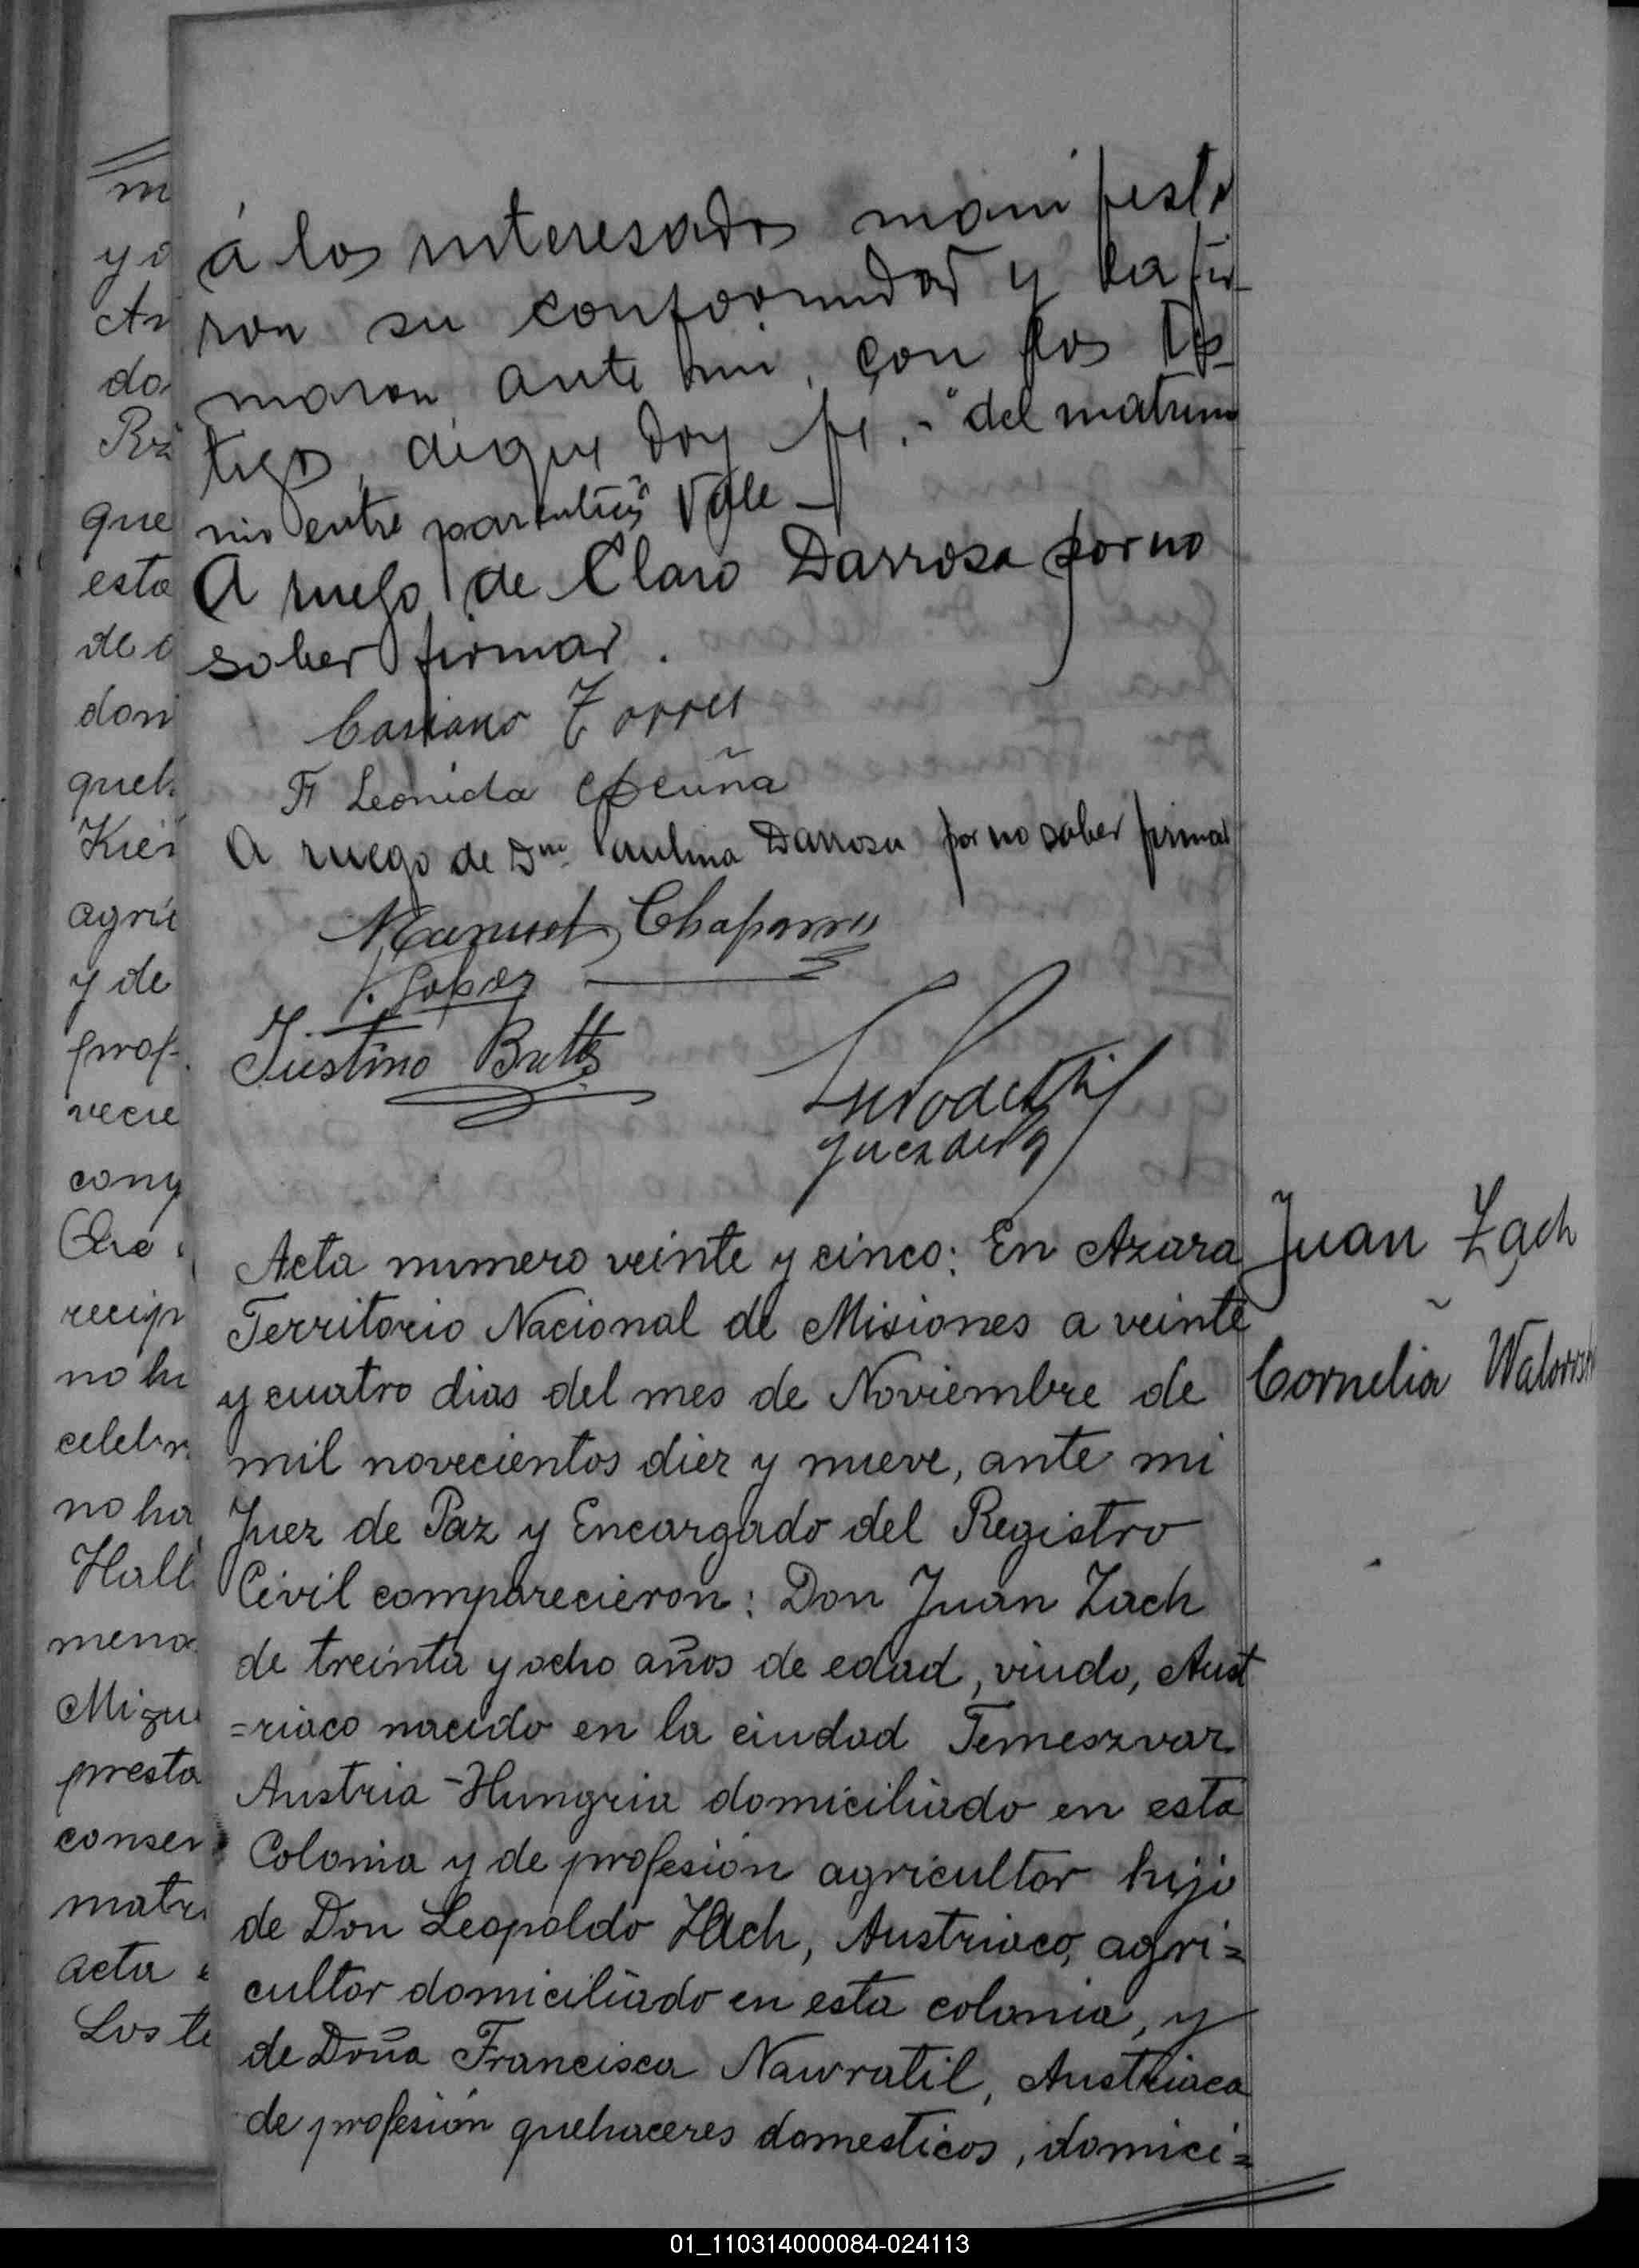 á los interesados manifesta
ron su conformidad y la fir-
maron ante mi, con los tes-
tigos, de que doy fe.- "del matrimo
nio entre" Vale
A ruego de Claro Darrosa por no
saber firmar.
Casiano Torres
Leonida Acuña
A ruego de Dña Paulina Darrosa por no saber firmar
Manuel Chaparro
J. Lopez
Justino Britto
Juez de Paz
Acta numero veinte y cinco: En Azara
Juan Zach
Territorio Nacional de Misiones a veinte
y cuatro dias del mes de Noviembre de
Cornelia
mil novecientos diez y nueve, ante mi
Juez de Paz y Encargado del Registro
Civil comparecieron: Don Juan Zach
de treinta y ocho años de edad, viudo, Aust
=riaco nacido en la ciudad Temeszvar
Austria-Hungria domiciliado en esta
Colonia y de profesión agricultor hijo
de Don Leopoldo Zach, Austriaco, agri=
cultor domiciliado en esta colonia, y
de Doña Francisca Nawratil, Austriaca
de profesión quehaceres domesticos, domici=
m
y
do
que
esta
de
don
queh
Kier
agric
y de
prof-
vecie
cony
recip
no hu
celebr
no ha
Hall
meno
Migu
presta
conser
matri
acta
Los te
01_110314000084-024113